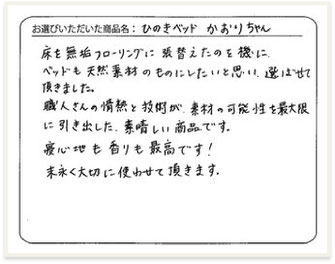 お選びいただいた商品名：ひのきベッド かおりちゃん
床を無垢フローリングに張替えたのを機に、
ベッドも天然素材のものにしたいと思い、選ばせて
頂きました。
職人さんの情熱と技術が、素材の可能性を最大限
に引き出した、素晴しい商品です。
寝心地も香りも最高です！
末永く大切に使わせて頂きます。